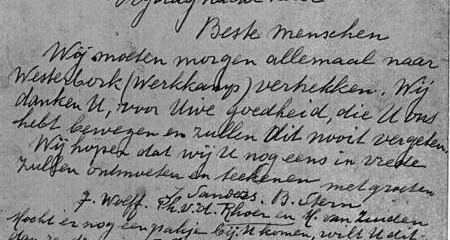 Beste menschen
Wij moeten morgen allemaal naar
Westerbork (Werkkamp) vertrekken. Wij
danken U, voor Uwe goedheid, die U ons
hebt bewezen en zullen dit nooit vergeten.
Wij hopen dat wij U nog eens in vrede
zullen ontmoeten en teekenen met groeten
J. Wolff. J. Sanders. B. Stern
Ph. v. d. Rhoer en H. van Zuiden
Mocht er nog een pakje bij U komen, wilt U dit